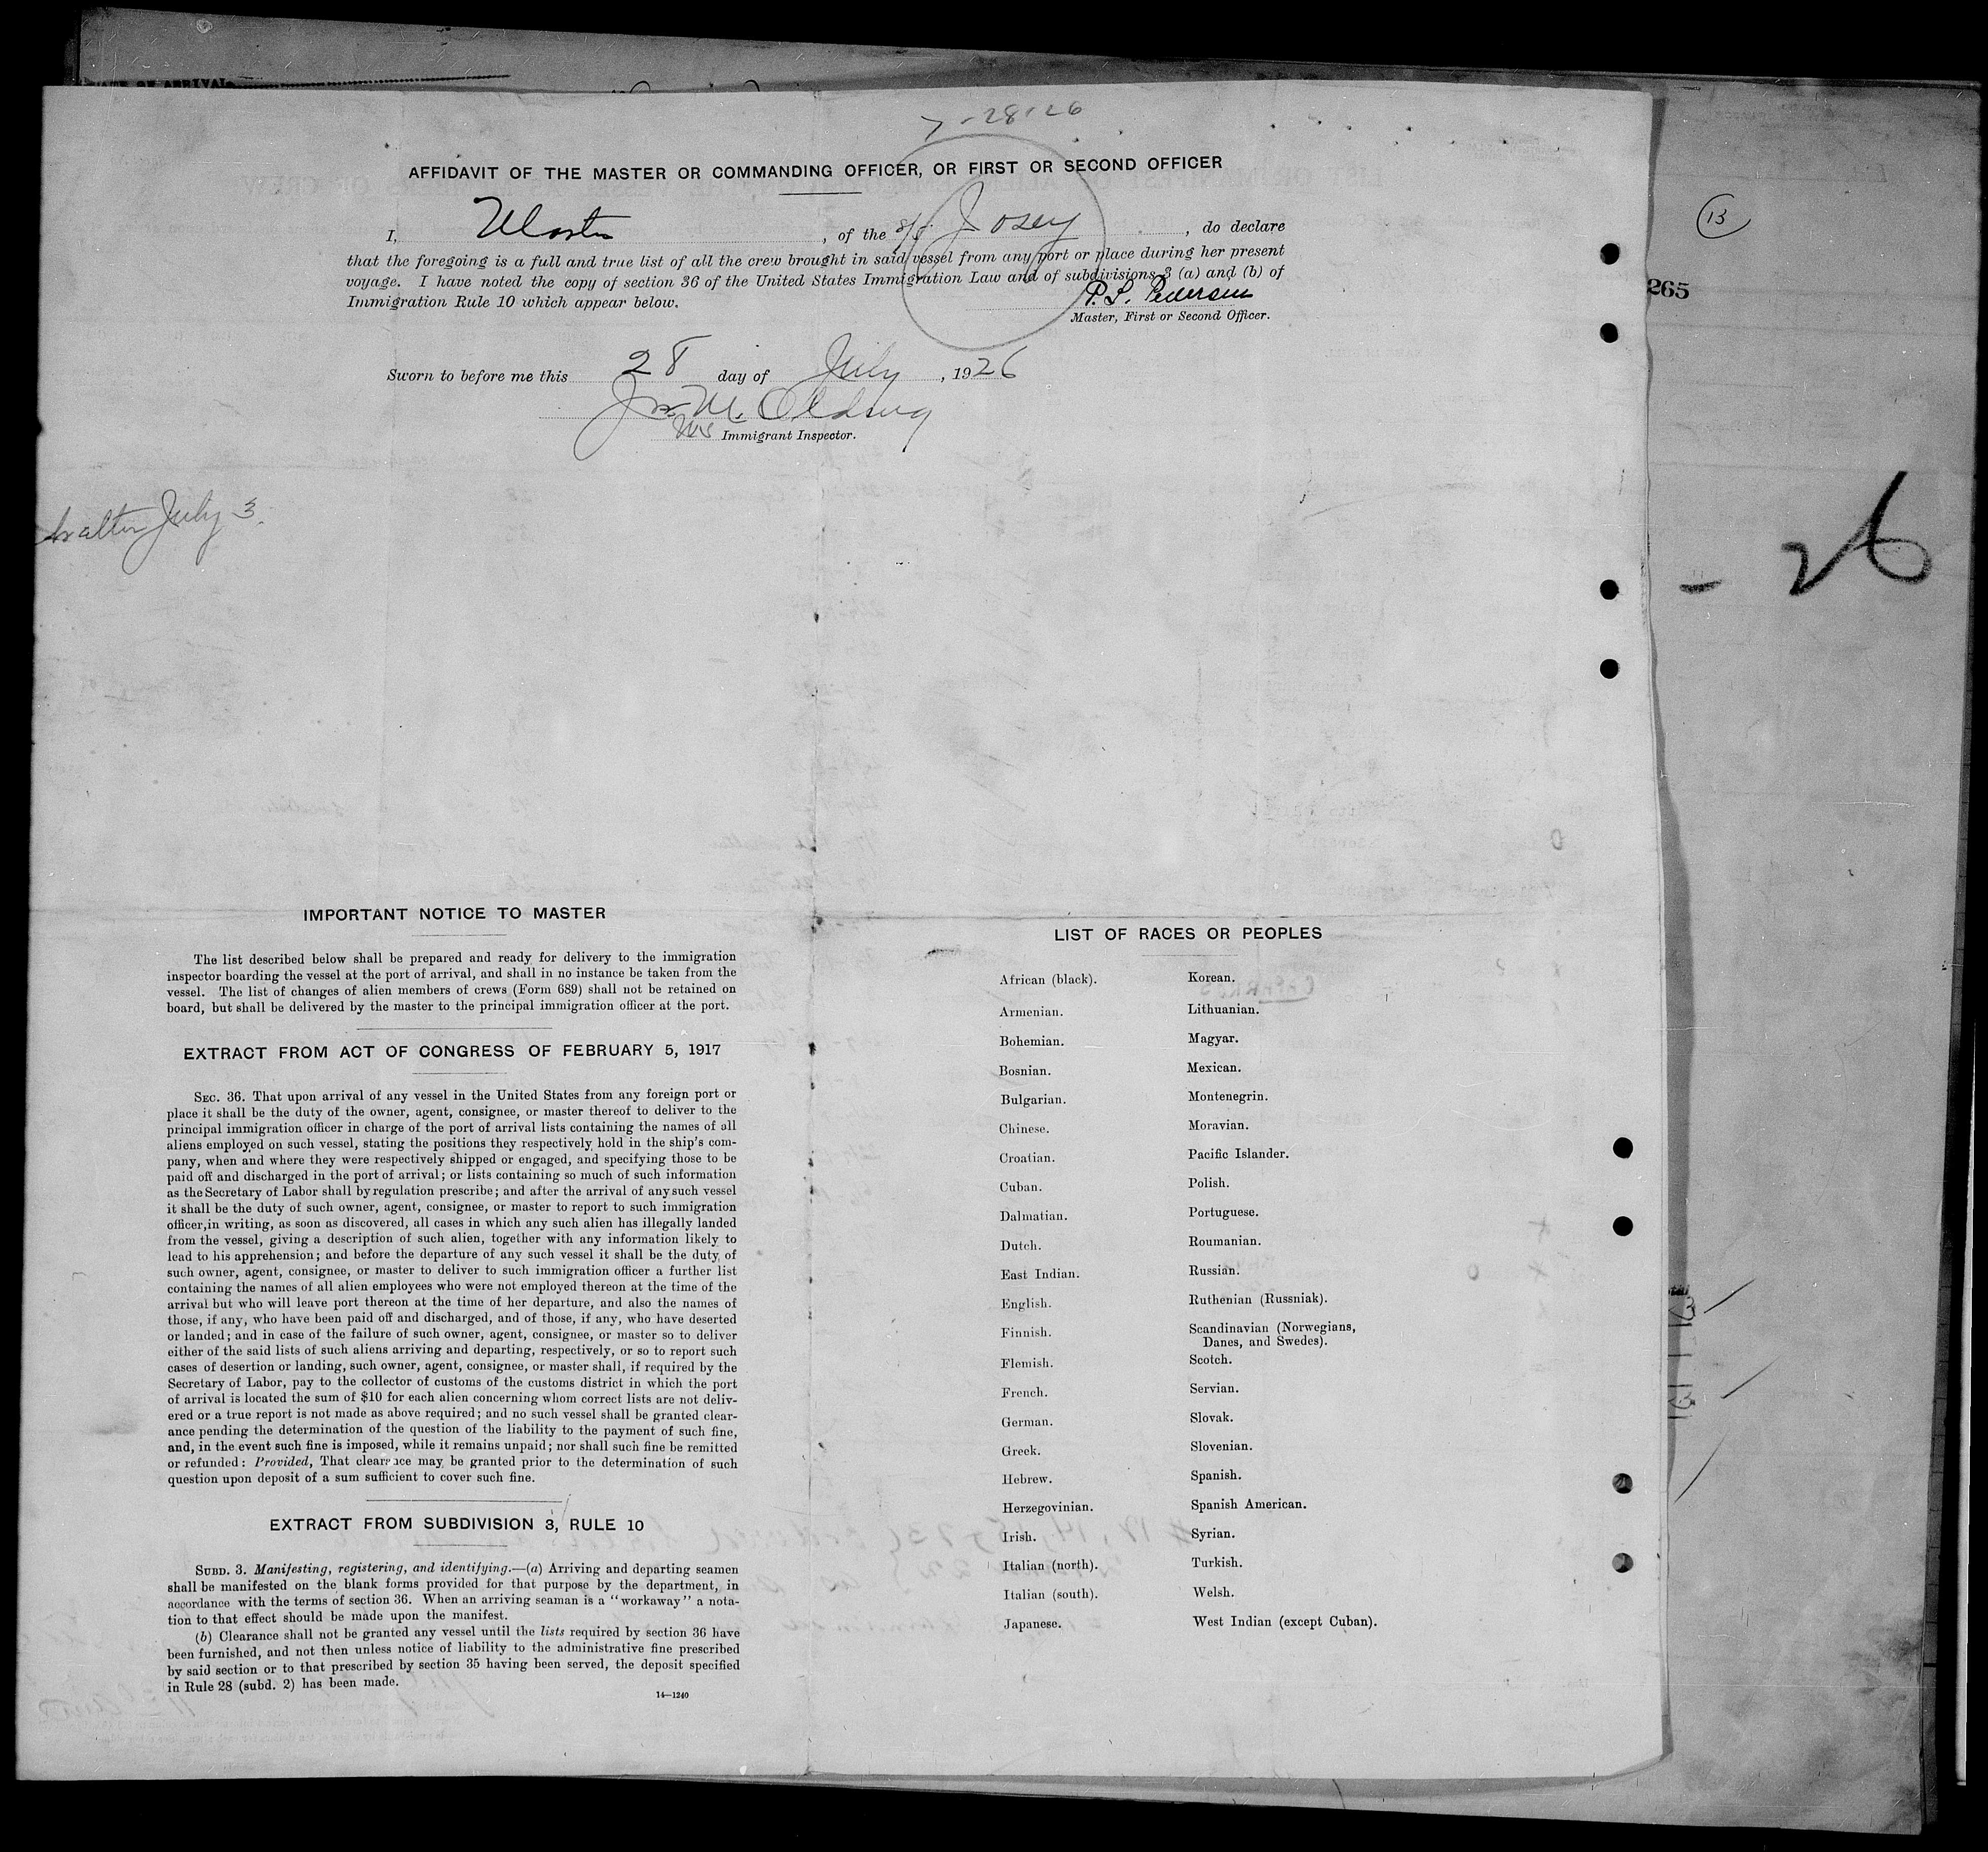 7-28-26
AFFIDAVIT OF THE MASTER OR COMMANDING OFFICER, OR FIRST OR SECOND OFFICER
I, Master, of the s/s Josey, do declare
that the foregoing is a full and true list of all the crew brought in said vessel from any port or place during her present
voyage. I have noted the copy of section 36 of the United States Immigration Law and of subdivisions 3 (a) and (b) of
Immigration Rule 10 which appear below.
P. S. Pedersen
Master, First or Second Officer.
Sworn to before me this 28 day of July, 1926
Immigrant Inspector.
July 3
13
265
- 26
IMPORTANT NOTICE TO MASTER
The list described below shall be prepared and ready for delivery to the immigration
inspector boarding the vessel at the port of arrival, and shall in no instance be taken from the
vessel. The list of changes of alien members of crews (Form 689) shall not be retained on
board, but shall be delivered by the master to the principal immigration officer at the port.
EXTRACT FROM ACT OF CONGRESS OF FEBRUARY 5, 1917
SEC. 36. That upon arrival of any vessel in the United States from any foreign port or
place it shall be the duty of the owner, agent, consignee, or master thereof to deliver to the
principal immigration officer in charge of the port of arrival lists containing the names of all
aliens employed on such vessel, stating the positions they respectively hold in the ship's com-
pany, when and where they were respectively shipped or engaged, and specifying those to be
paid off and discharged in the port of arrival; or lists containing so much of such information
as the Secretary of Labor shall by regulation prescribe; and after the arrival of any such vessel
it shall be the duty of such owner, agent, consignee, or master to report to such immigration
officer, in writing, as soon as discovered, all cases in which any such alien has illegally landed
from the vessel, giving a description of such alien, together with any information likely to
lead to his apprehension; and before the departure of any such vessel it shall be the duty of
such owner, agent, consignee, or master to deliver to such immigration officer a further list
containing the names of all alien employees who were not employed thereon at the time of the
arrival but who will leave port thereon at the time of her departure, and also the names of
those, if any, who have been paid off and discharged, and of those, if any, who have deserted
or landed; and in case of the failure of such owner, agent, consignee, or master so to deliver
either of the said lists of such aliens arriving and departing, respectively, or so to report such
cases of desertion or landing, such owner, agent, consignee, or master shall, if required by the
Secretary of Labor, pay to the collector of customs of the customs district in which the port
of arrival is located the sum of $10 for each alien concerning whom correct lists are not deliv-
ered or a true report is not made as above required; and no such vessel shall be granted clear-
ance pending the determination of the question of the liability to the payment of such fine,
and, in the event such fine is imposed, while it remains unpaid; nor shall such fine be remitted
or refunded: Provided, That clearance may be granted prior to the determination of such
question upon deposit of a sum sufficient to cover such fine.
EXTRACT FROM SUBDIVISION 3, RULE 10
SUBD. 3. Manifesting, registering, and identifying.—(a) Arriving and departing seamen
shall be manifested on the blank forms provided for that purpose by the department, in
accordance with the terms of section 36. When an arriving seaman is a "workaway" a nota-
tion to that effect should be made upon the manifest.
(b) Clearance shall not be granted any vessel until the lists required by section 36 have
been furnished, and not then unless notice of liability to the administrative fine prescribed
by said section or to that prescribed by section 35 having been served, the deposit specified
in Rule 28 (subd. 2) has been made.
14—1240
LIST OF RACES OR PEOPLES
African (black).
Armenian.
Bohemian.
Bosnian.
Bulgarian.
Chinese.
Croatian.
Cuban.
Dalmatian.
Dutch.
East Indian.
English.
Finnish.
Flemish.
French.
German.
Greek.
Hebrew.
Herzegovinian.
Irish.
Italian (north).
Italian (south).
Japanese.
Korean.
Lithuanian.
Magyar.
Mexican.
Montenegrin.
Moravian.
Pacific Islander.
Polish.
Portuguese.
Roumanian.
Russian.
Ruthenian (Russniak).
Scandinavian (Norwegians,
Danes, and Swedes).
Scotch.
Servian.
Slovak.
Slovenian.
Spanish.
Spanish American.
Syrian.
Turkish.
Welsh.
West Indian (except Cuban).